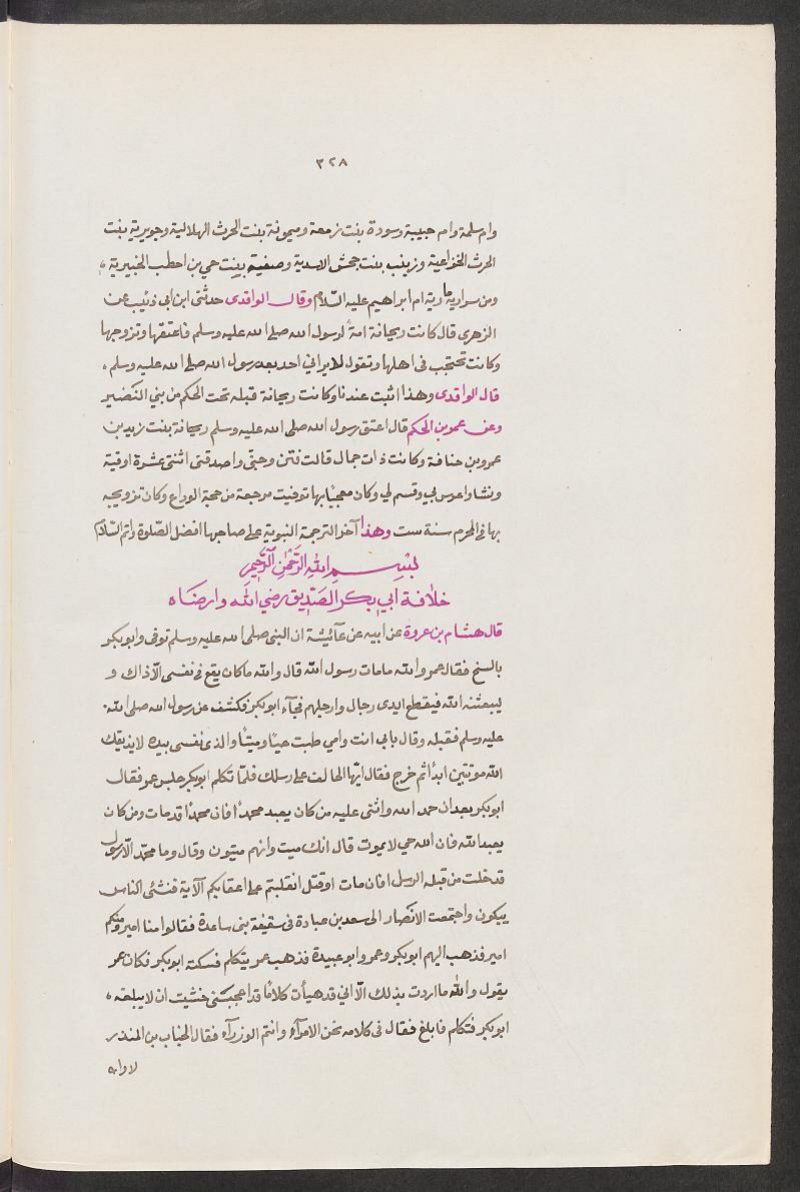 ٣٢٨
وام سلمة وام حبيبة وسودة بنت زمعة وميمونة بنت الحرث الهلالية وجويرية بنت
الحرث الخزاعية وزينب بنت جحش الاسدية وصفية بنت حي بن احطب الخيبرية ،
ومن سراريه مارية ام ابراهيم عليه السّلام وقال الواقدى حدثنى ابن ابى ذئيب عن
الزهرى قال كانت ريحانة امة لرسول الله صلى الله عليه وسلم فاعتقها وتزوجها
وكانت تحتجب فى اهلها وتقول لا يرانى احد بعد رسول الله صلى الله عليه وسلم ،
قال الواقدى وهذا اثبت عندنا وكانت ريحانة قبله تحت الحكم من بني النضير
وعن عمر بن الحكم قال اعتق رسول الله صلى الله عليه وسلم ريحانة بنت زيد بن
عمرو بن خنافة وكانت ذات جمال قالت فتزوجنى واصدقنى اثنتى عشرة اوقية
ونشا واعرس بي وقسم لي وكان معجبًا بها توفيت مرجعه من حجة الوداع وكان تزويجه
بها فى المحرم سنة ست وهذا آخر الترجمة النبوية على صاحبها افضل الصّلوة واتم السّلام
بسم الله الرحمن الرحيم
خلافة ابي بكر الصديق رضي الله وارضاه
قال هشام بن عروة عن ابيه عن عآئيشة ان النبى صلى الله عليه وسلم توفى وابو بكر
بالسخ فقال عمر والله مامات رسول الله قال والله ماكان يقع فى نفسى الّا ذاك و
ليبعثنه الله فيقطع ايدى رجال وارجلهم فجآء ابو بكر فكشف عن رسول الله صلى الله
عليه وسلم فقبله وقال بابى انت وامي طبت حيًا وميتًا والذى نفسى بيده لا يذيقك
الله موتتين ابدًا ثم خرج فقال ايّها الحالف على رسلك فلمّا تكلم ابو بكر جلس عمر فقال
ابو بكر بعد ان حمد الله واثنى عليه من كان يعبد محمدًا فان محمدًا قدمات ومن كان
يعبد الله فان الله حي لا يموت قال انك ميت وانهم ميتون وقال وما محمّد الّا رسول
قد خلت من قبله الرسل افان مات او قتل انقلبتم على اعقابكم الآية فنشئى الناس
يبكون واجتمعت الانصار الى سعد بن عبادة فى سقيفة بنى ساعدة فقالوا منا امير ومنكم
امير فذهب اليهم ابو بكر وعمر وابو عبيدة فذهب عمر يتكلم فسكته ابو بكر فكان عمر
يقول والله ما اردت بذلك الّا اني قد هيأت كلامًا قد اعجبنى خشيت ان لا يبلغه ،
ابو بكر فتكلم فابلغ فقال فى كلامه نحن الامرآء وانتم الوزرآء فقال الحباب بن المنذر
لا والله